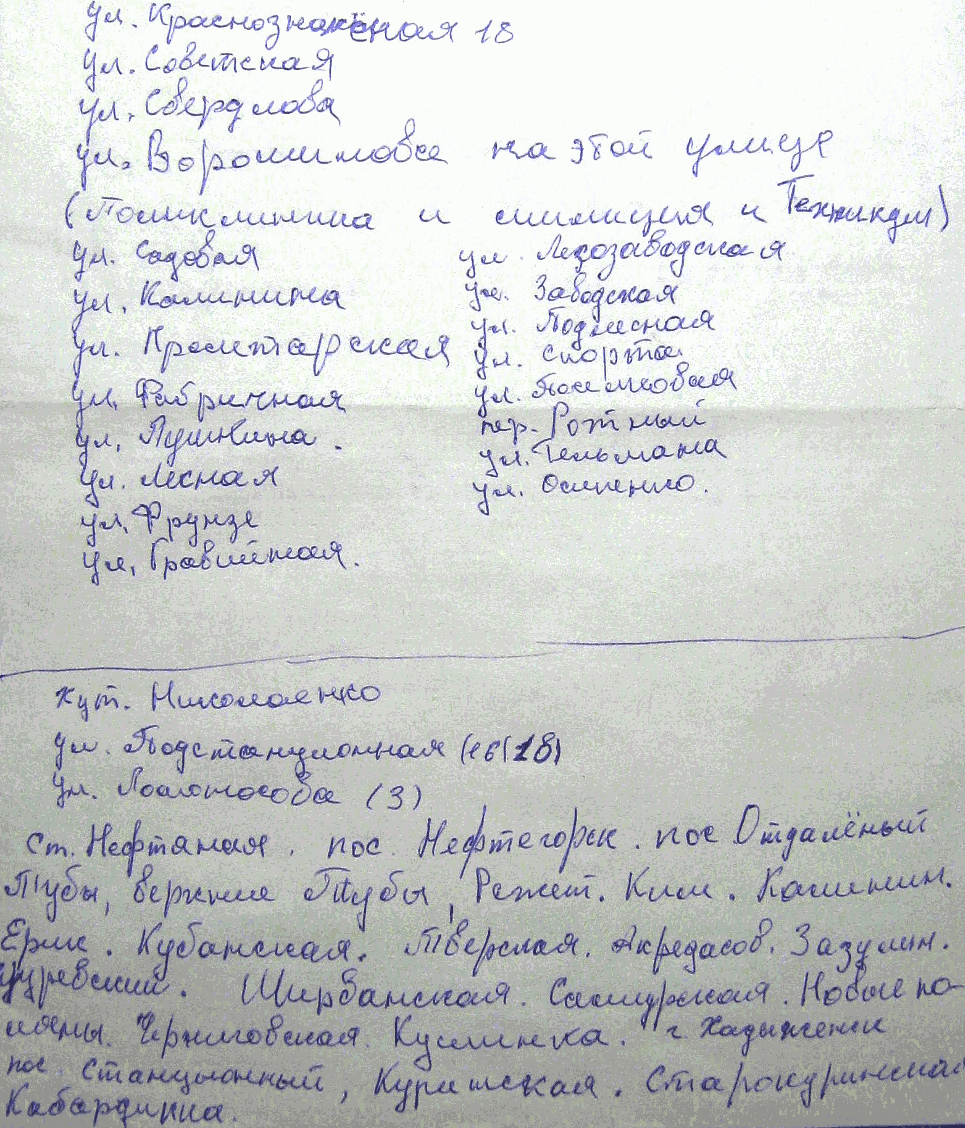 ул. Краснознамёная 18
ул. Советская
ул. Свердлова
ул. Ворошилова на этой улице
(Поликлиника и милиция и Техникум)
ул. Садовая
ул. Калинина
ул. Пролетарская
ул. Фабричная
ул. Пушкина.
ул. Лесная
ул. Фрунзе
ул. Гравийная.
ул. Лесозаводская
ул. Заводская
ул. Подлесная
ул. Спорта
ул. Поселковая
пер. Ротный
ул. Тельмана
ул. Осипенко.
хут. Николаенко
ул. Подстанционная (16/18)
ул. Ломоносова (3)
Ст. Нефтяная. пос. Нефтегорск. пос Отдалёный
Тубы, верхние Тубы, Режет. Ким. Калинин.
Ерик. Кубанская. Тверская. Акредасов. Зазулин.
Гуревский. Ширванская. Самурская. Новые по-
ляны. Черниговская. Кушинка. г. Хадыженск
пос. Станционный, Куринская. Старокуринская
Кабардинка.